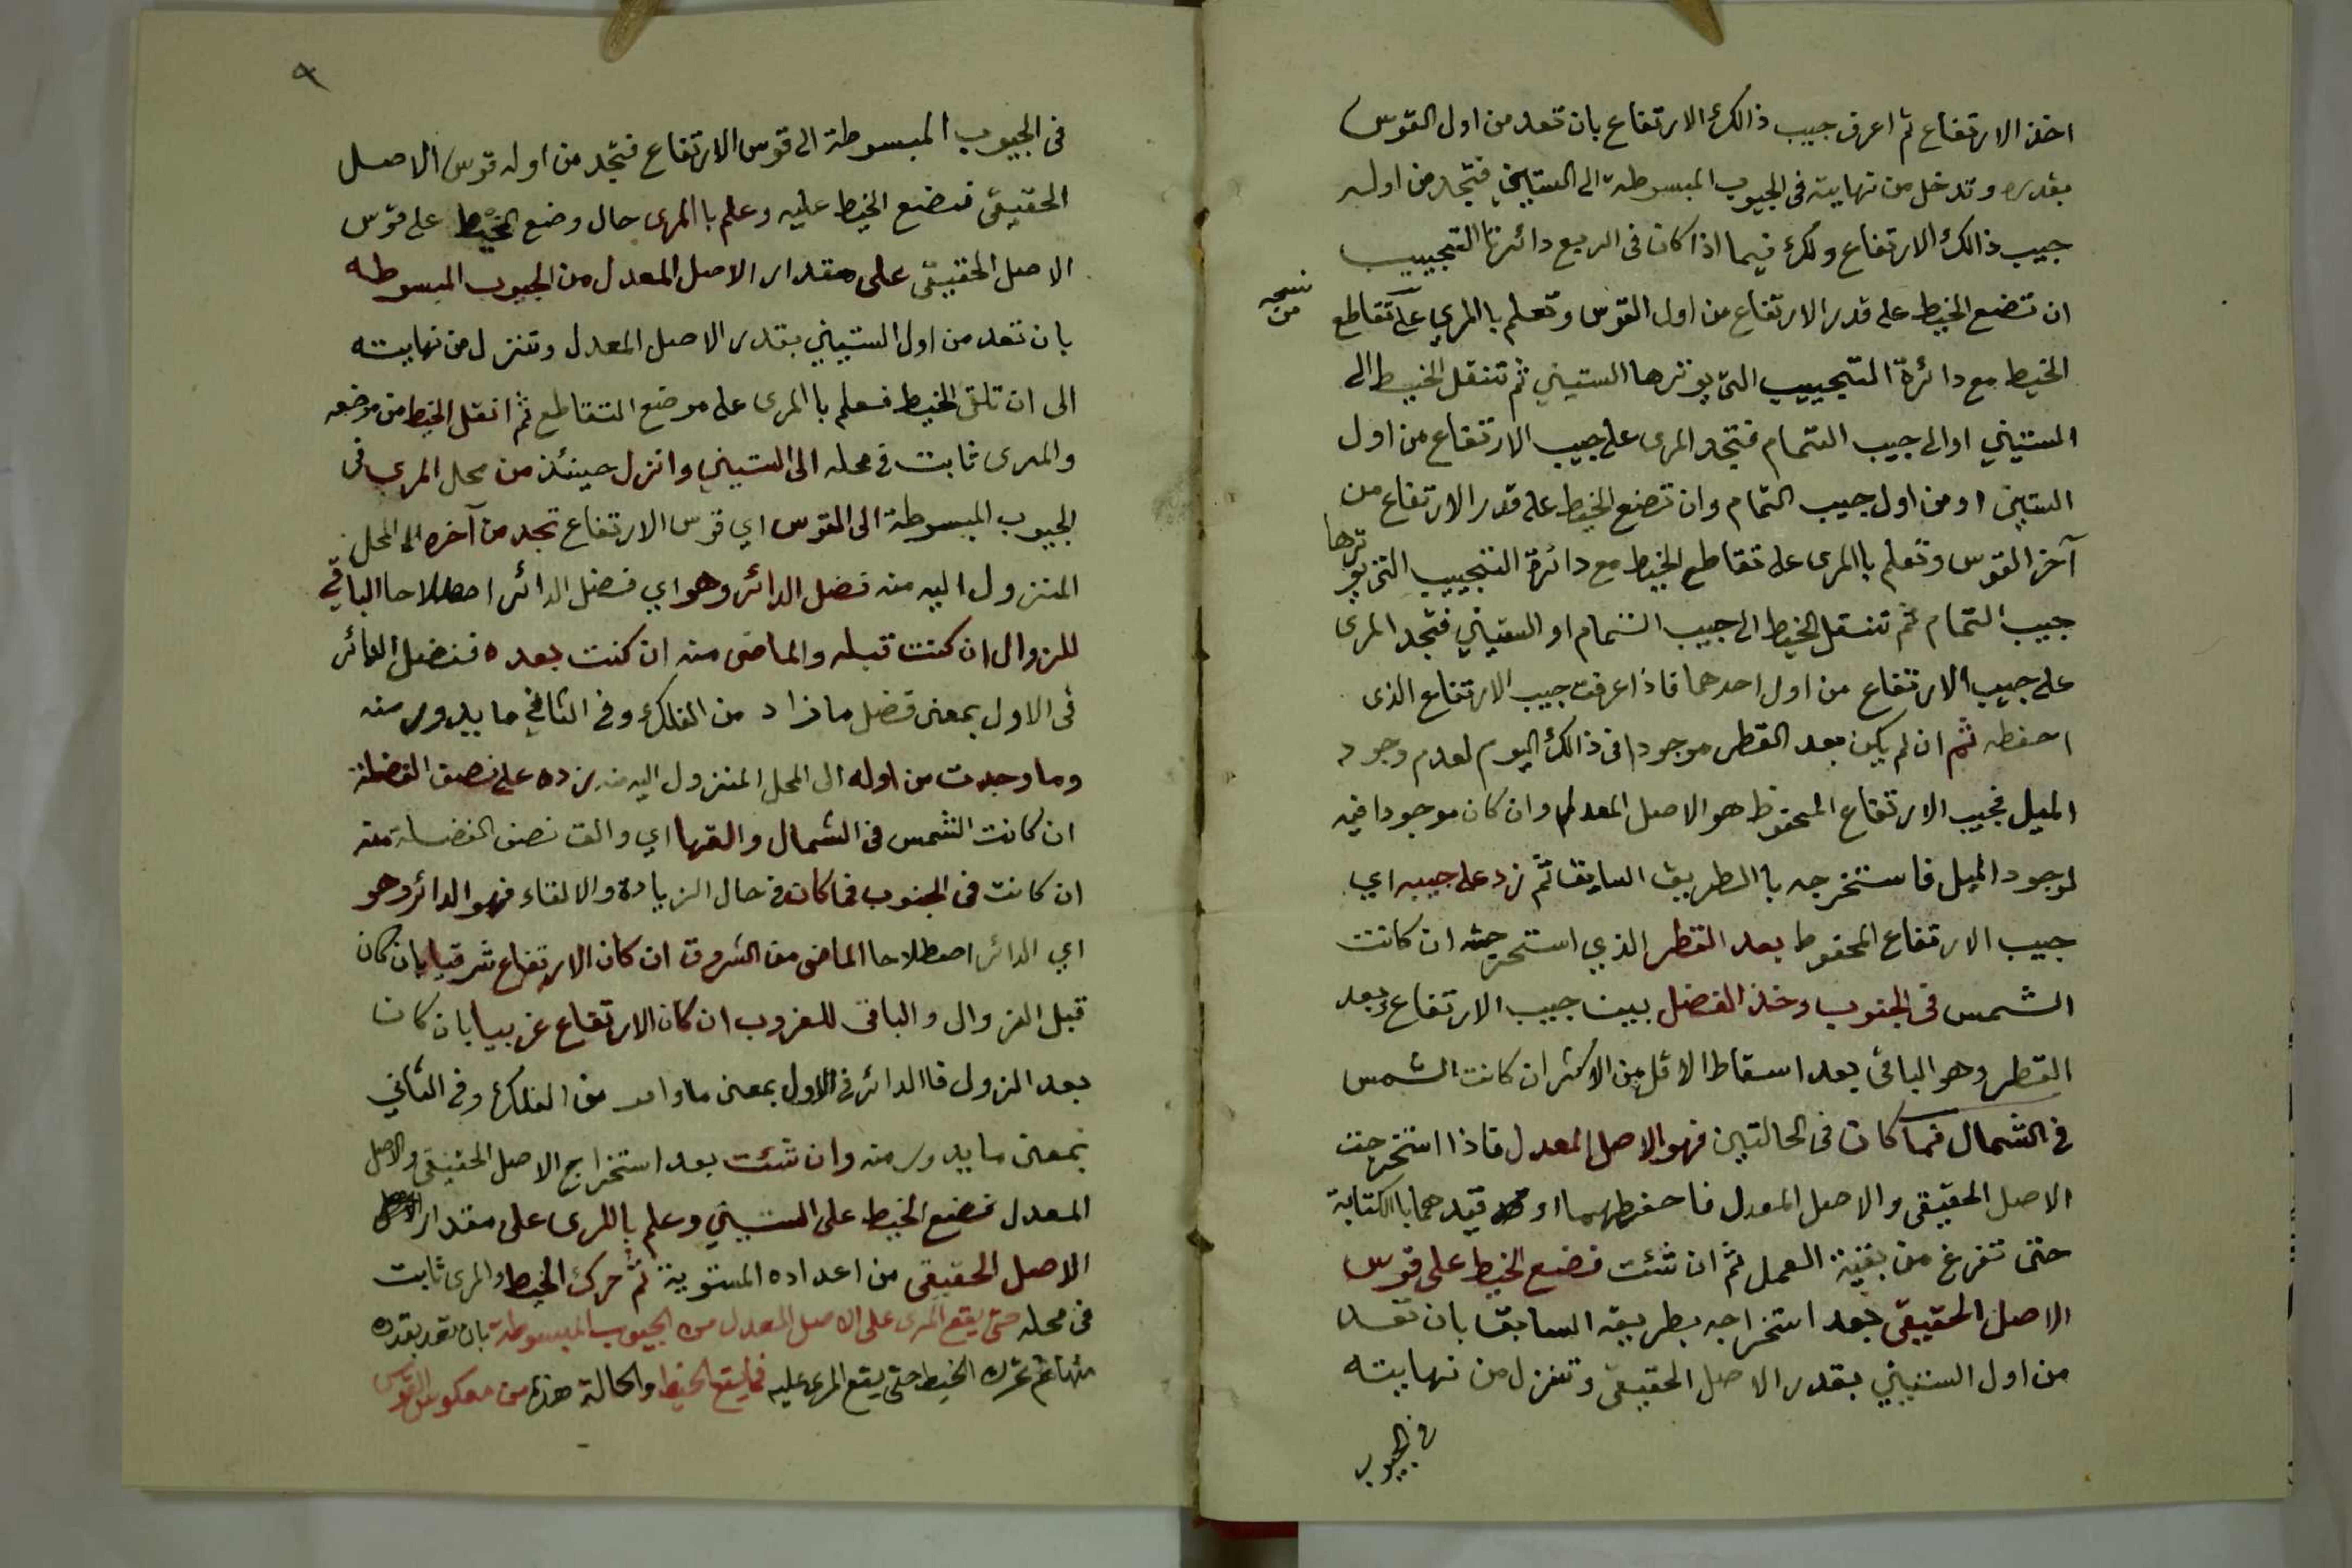 اخذ الارتفاع ثم اعرف جيب ذالك الارتفاع بان تعد من اول القوس
بقدره وتدخل من نهايته فى الجيوب المبسوطة الى الستيني فتجد من اوله
جيب ذالك الارتفاع ولك فيما اذا كان فى الربع دائرتا التجييب
ان تضع الخيط على قدر الارتفاع من اول القوس وتعلم باالمري على تقاطع
نسخه من
الخيط مع دائرة التجييب التى يوترها الستيني ثم تنقل الخيط الى
الستيني او الى جيب التمام فتجد المرى على جيب الارتفاع من اول
الستيني او من اول جيب التمام وان تضع الخيط على قدر الارتفاع من
آخر القوس وتعلم باالمرى على تقاطع الخيط مع دائرة التجييب التى يوترها
جيب التمام ثم تنقل الخيط الى جيب التمام او الستيني فتجد المرى
على جيب الارتفاع من اول احدهما فاذا عرفت جيب الارتفاع الذى
احفظه ثم ان لم يكن بعد القطر موجودا فى ذالك اليوم لعدم وجود
الميل فجيب الارتفاع المحفوظ هو الاصل المعدل وان كان موجودا فيه
لوجود الميل فاستخرجه باالطريق السابق ثم زد على جيبه اي
جيب الارتفاع المحفوظ بعد القطر الذي استخرجته ان كانت
الشمس فى الجنوب وخذ الفضل بين جيب الارتفاع وبعد
القطر وهو الباقى بعد اسقاط الاقل من الاكثر ان كانت الشمس
فى الشمال فما كان فى الحالتين فهو الاصل المعدل فاذا استخرجت
الاصل الحقيقى والاصل المعدل فاحفظهما او قيدهما باالكتابة
حتى تفرغ من بقية العمل ثم ان شئت فضع الخيط على قوس
الاصل الحقيقى بعد استخراجه بطريقه السابق بان تعد
من اول الستيني بقدر الاصل الحقيقى وتنزل من نهايته
فى الجيوب
٩
فى الجيوب المبسوطة الى قوس الارتفاع فتجد من اوله قوس الاصل
الحقيقى فتضع الخيط عليه وعلم باالمرى حال وضع الخيط على قوس
الاصل الحقيقى على مقدار الاصل المعدل من الجيوب المبسوطه
بان تعد من اول الستيني بقدر الاصل المعدل وتنزل من نهايته
الى ان تلق الخيط فعلم باالمرى على موضع التقاطع ثم انقل الخيط من موضعه
والمرى ثابت فى محله الى الستيني وانزل حينئذ من محل المرى فى
الجيوب المبسوطة الى القوس اي قوس الارتفاع تجد من آخره الى المحل
المنزول اليه منه فضل الدائر وهو اي فضل الدائر اصطلاحا الباقي
للزوال ان كنت قبله والماضى منه ان كنت بعده ففضل الدائر
فى الاول بمعنى فضل ما زاد من الفلك وفى الثاني ما يدور منه
وما وجدت من اوله الى المحل المنزول اليه منه زده على نصف الفضلة
ان كانت الشمس فى الشمال والقها اي والق نصف الفضلة منه
ان كانت فى الجنوب فما كان فى حال الزيادة والالقاء فهو الدائر وهو
اي الدائر اصطلاحا الماضى من الشروق ان كان الارتفاع شرقيا بان كان
قبل الزوال والباقى للغروب ان كان الارتفاع غربيا بان كان
بعد الزول فاالدائر فى الاول بمعنى ما دار من الفلك وفى الثاني
بمعنى ما يدور منه وان شئت بعد استخراج الاصل الحقيقى والاصل
المعدل فضع الخيط على الستيني وعلم باالمرى على مقدار
الاصل الحقيقى من اعداده المستوية ثم حرك الخيط والمرى ثابت
فى محله حتى يقع المرى على الاصل المعدل من الجيوب المبسوطة بان تعد بقدره
منها ثم تحرك الخيط حتى يقع المرى عليه فما يقع الخيط والحالة هذه من معكوس القوس